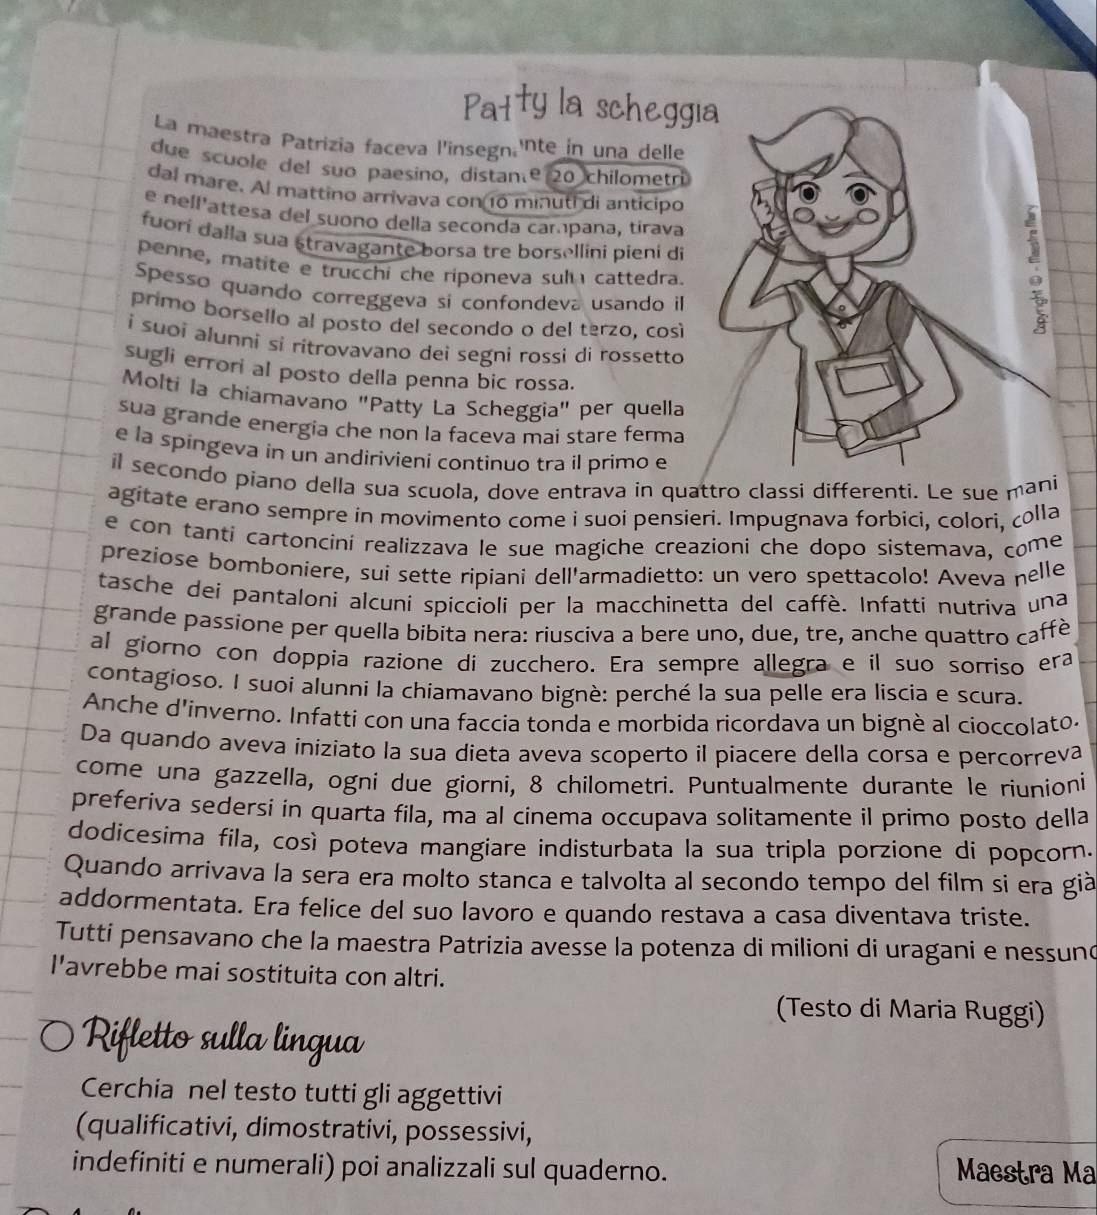 Patty la scheggia
La maestra Patrizia faceva l'insegnante in una delle
due scuole del suo paesino, distante 20 chilometri
dal mare. Al mattino arrivava con 10 minuti di anticipo
e nell'attesa del suono della seconda campana, tirava
fuori dalla sua stravagante borsa tre borsellini pieni di
penne, matite e trucchi che riponeva sulla cattedra.
Spesso quando correggeva si confondeva usando il
primo borsello al posto del secondo o del terzo, così
i suoi alunni si ritrovavano dei segni rossi di rossetto
sugli errori al posto della penna bic rossa.
Molti la chiamavano "Patty La Scheggia" per quella
sua grande energia che non la faceva mai stare ferma
e la spingeva in un andirivieni continuo tra il primo e
il secondo piano della sua scuola, dove entrava in quattro classi differenti. Le sue mani
agitate erano sempre in movimento come i suoi pensieri. Impugnava forbici, colori, colla
e con tanti cartoncini realizzava le sue magiche creazioni che dopo sistemava, come
preziose bomboniere, sui sette ripiani dell'armadietto: un vero spettacolo! Aveva nelle
tasche dei pantaloni alcuni spiccioli per la macchinetta del caffè. Infatti nutriva una
grande passione per quella bibita nera: riusciva a bere uno, due, tre, anche quattro caffè
al giorno con doppia razione di zucchero. Era sempre allegra e il suo sorriso era
contagioso. I suoi alunni la chiamavano bignè: perché la sua pelle era liscia e scura.
Anche d'inverno. Infatti con una faccia tonda e morbida ricordava un bignè al cioccolato.
Da quando aveva iniziato la sua dieta aveva scoperto il piacere della corsa e percorreva
come una gazzella, ogni due giorni, 8 chilometri. Puntualmente durante le riunioni
preferiva sedersi in quarta fila, ma al cinema occupava solitamente il primo posto della
dodicesima fila, così poteva mangiare indisturbata la sua tripla porzione di popcorn.
Quando arrivava la sera era molto stanca e talvolta al secondo tempo del film si era già
addormentata. Era felice del suo lavoro e quando restava a casa diventava triste.
Tutti pensavano che la maestra Patrizia avesse la potenza di milioni di uragani e nessuno
l'avrebbe mai sostituita con altri.
(Testo di Maria Ruggi)
Copyright © - Maestra Mary
Rifletto sulla lingua
Cerchia nel testo tutti gli aggettivi
(qualificativi, dimostrativi, possessivi,
indefiniti e numerali) poi analizzali sul quaderno.
Maestra Ma